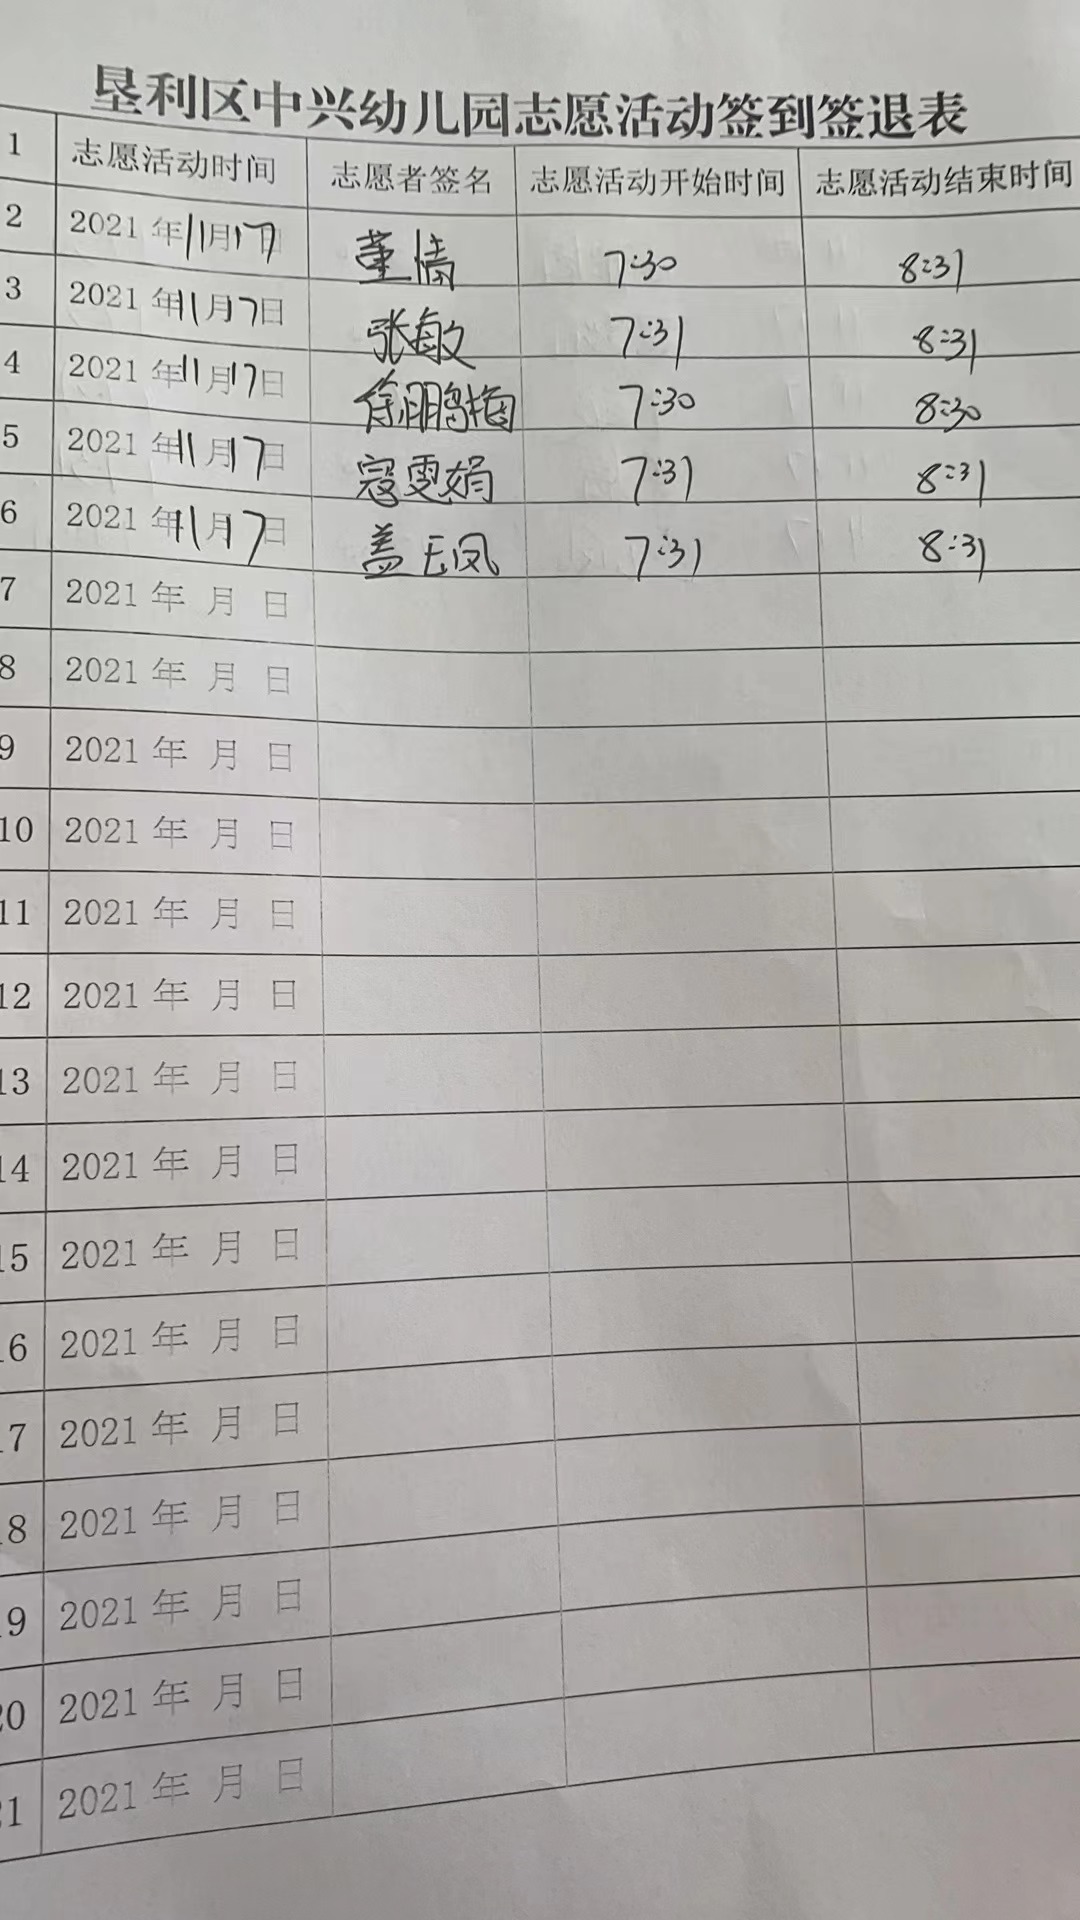 垦利区中兴幼儿园志愿活动签到签退表
1 志愿活动时间 志愿者签名 志愿活动开始时间 志愿活动结束时间
2 2021年11月17日 董倩 7:30 8:31
3 2021年11月7日 张敏 7:31 8:31
4 2021年11月17日 徐鹏梅 7:30 8:30
5 2021年11月17日 寇雯娟 7:31 8:31
6 2021年11月7日 盖玉凤 7:31 8:31
7 2021年 月 日
8 2021年 月 日
9 2021年 月 日
10 2021年 月 日
11 2021年 月 日
12 2021年 月 日
13 2021年 月 日
14 2021年 月 日
15 2021年 月 日
16 2021年 月 日
17 2021年 月 日
18 2021年 月 日
19 2021年 月 日
20 2021年 月 日
21 2021年 月 日